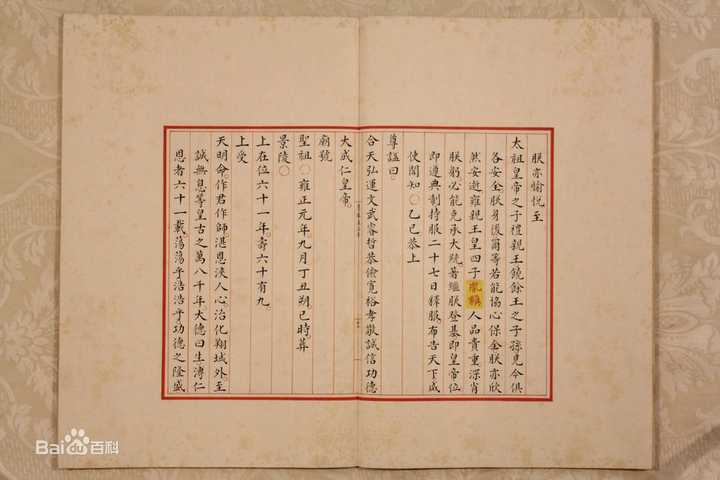 朕亦愉悅至
太祖皇帝之子禮親王饒餘王之子孫見今俱
各安全朕身後爾等若能協心保全朕亦欣
然安逝雍親王皇四子胤禛人品貴重深肖
朕躬必能克承大統著繼朕登基即皇帝位
即遵典制持服二十七日釋服布告天下咸
使聞知○乙巳恭上
尊諡曰。
合天弘運文武睿哲恭儉寬裕孝敬誠信功德
大成仁皇帝。
廟號
聖祖○雍正元年九月丁丑朔巳時。葬
景陵○
上在位六十一年。壽六十有九。
上受
天明命。作君作師。湛恩浹人心。治化翔域外。至
誠無息。等皇古之萬八千年。大德曰生。溥仁
恩者六十一載。蕩蕩乎。浩浩乎。功德之隆盛
Bai du 百科